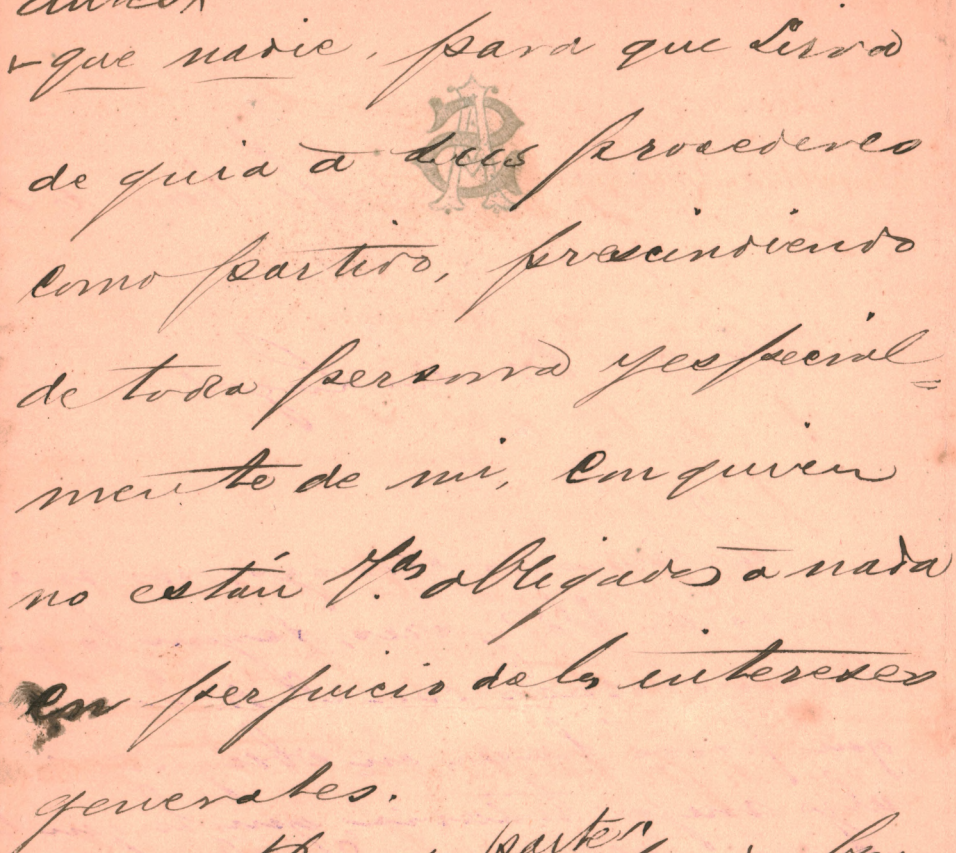 que nadie, para que sirva
de guia à sus procederes
como partido, prescindiendo
de toda persona y especial=
mente de mi, con quien
no están Vds obligados à nada
en perjuicio de los intereses
generales.
parte